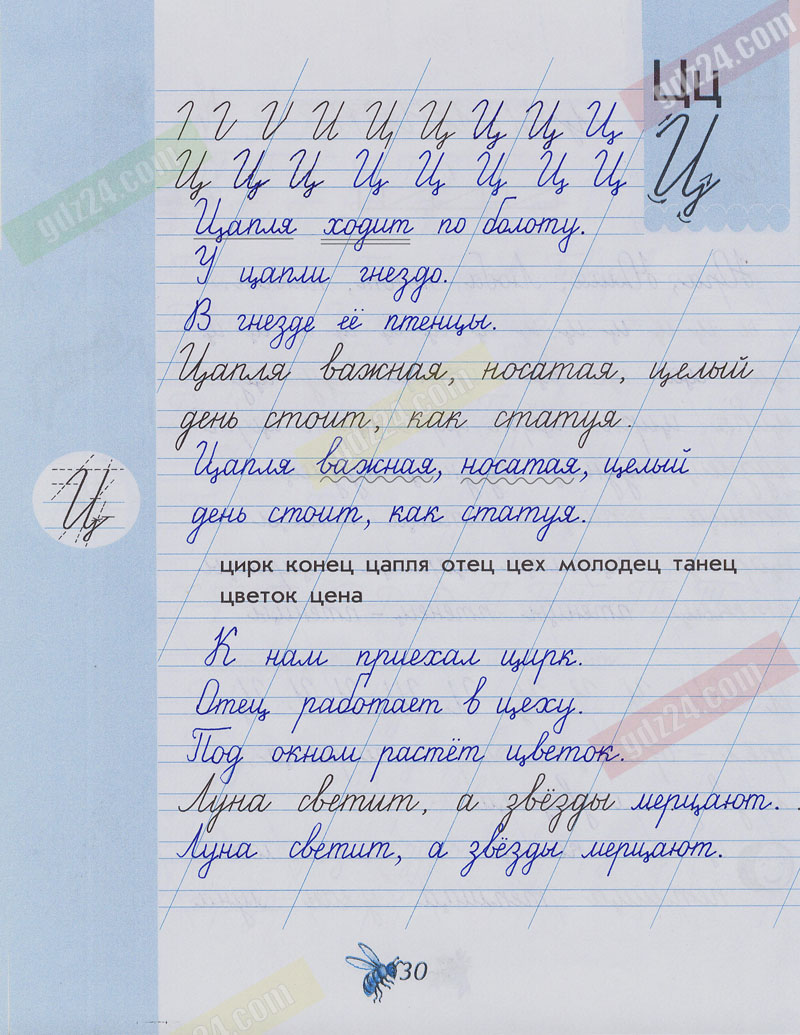 Цц
Ц
Ц Ц Ц Ц Ц
Ц Ц Ц Ц Ц Ц Ц Ц
Цапля ходит по болоту.
У цапли гнездо.
В гнезде её птенцы.
Цапля важная, носатая, целый
день стоит, как статуя.
Цапля важная, носатая, целый
день стоит, как статуя.
Ц
цирк конец цапля отец цех молодец танец
цветок цена
К нам приехал цирк.
Отец работает в цеху.
Под окном растёт цветок.
Луна светит, а звёзды мерцают.
Луна светит, а звёзды мерцают.
30
gdz24.com
gdz24.com
gdz24.com
gdz24.com
gdz24.com